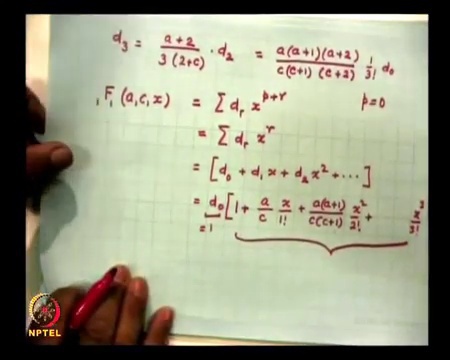 d₃ = (a+2)/(3(2+c)) · d₂ = (a(a+1)(a+2))/(c(c+1)(c+2)) 1/3! d₀
₁F₁(a,c,x) = Σ dᵣ x^(p+r) p=0
= Σ dᵣ x^r
= [d₀ + d₁x + d₂x² + ···]
= d₀[1 + a/c x/1! + a(a+1)/c(c+1) x²/2! + x³/3!
=1
NPTEL